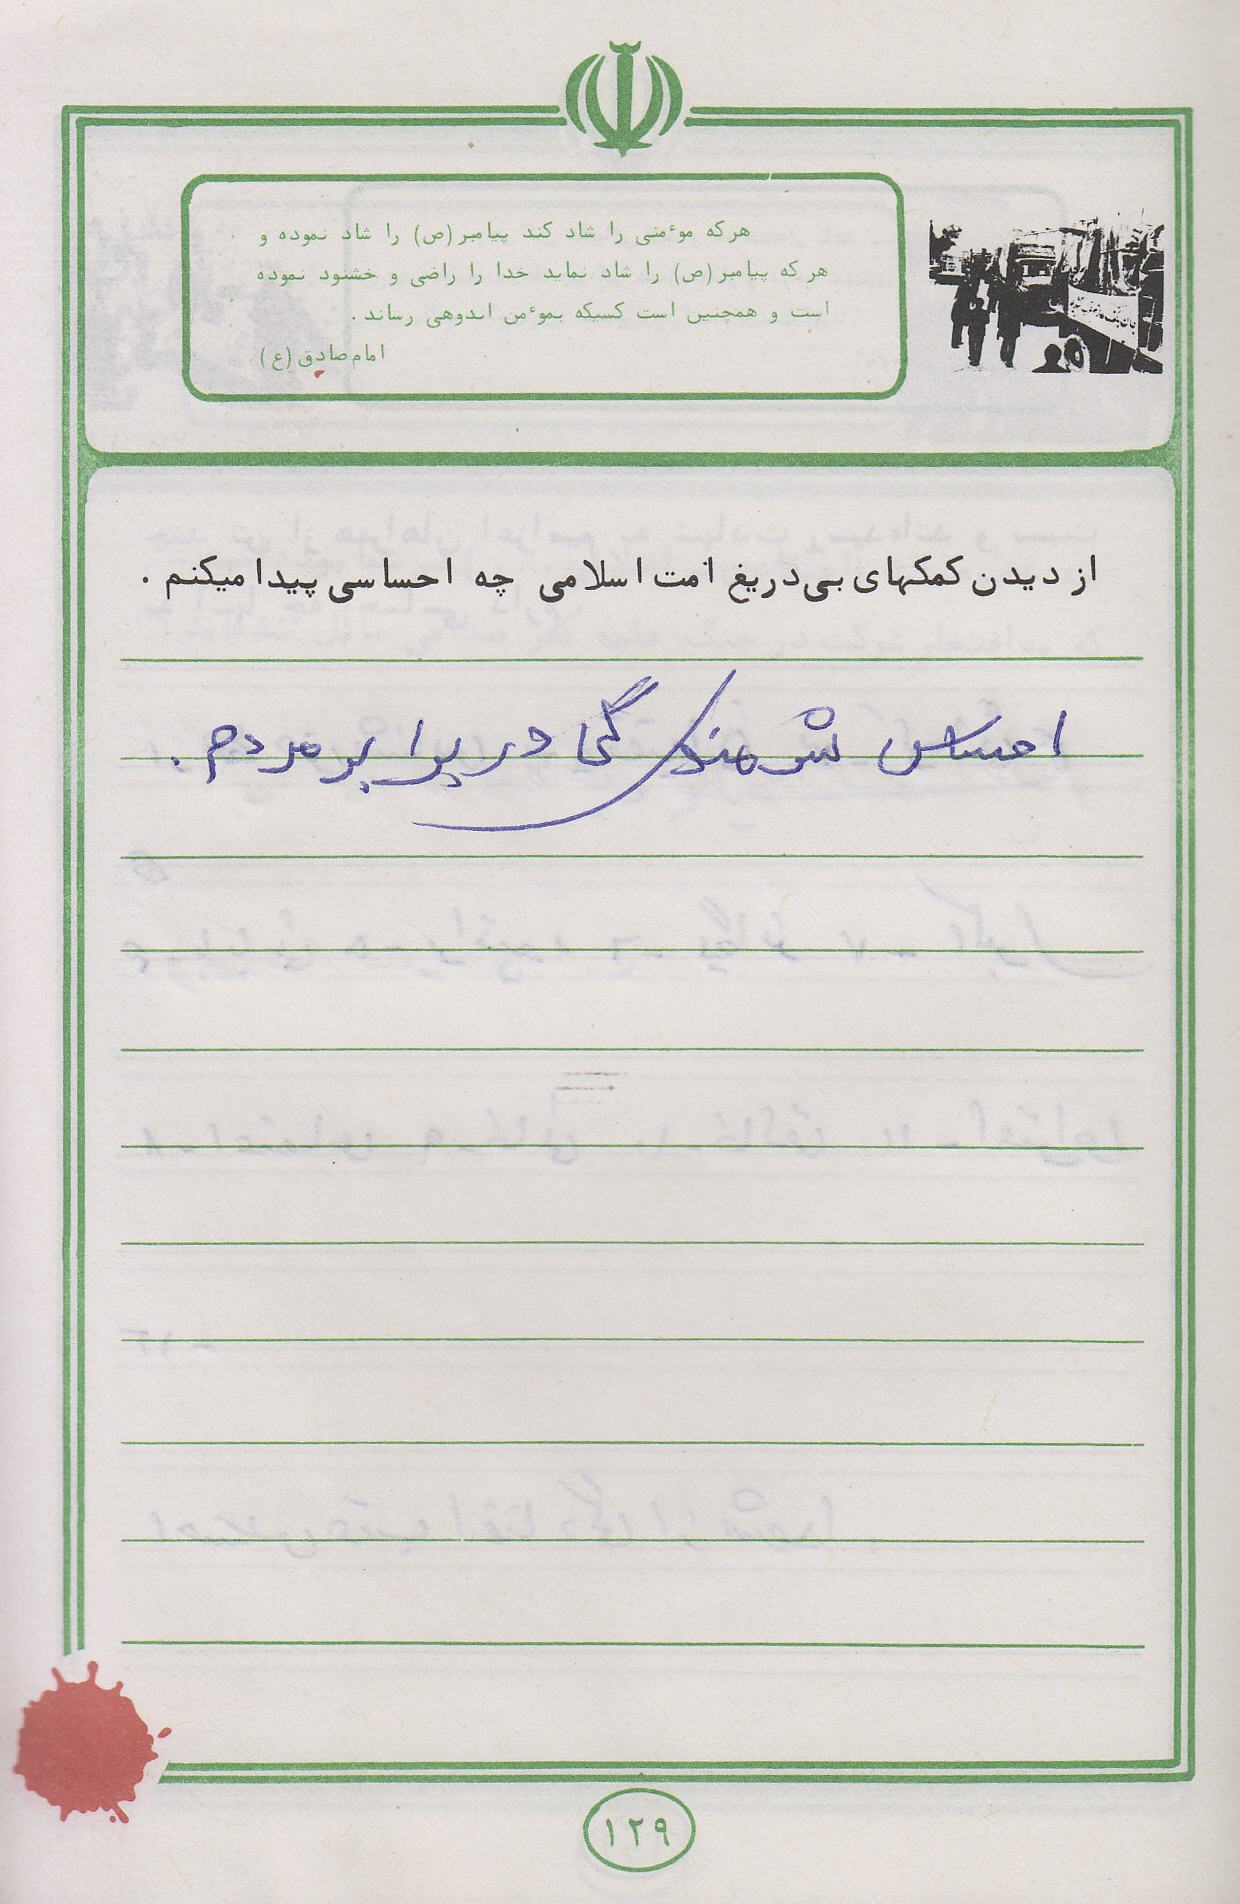 هرکه موٴمنی را شاد کند پیامبر (ص) را شاد نموده و
هرکه پیامبر (ص) را شاد نماید خدا را راضی و خشنود نموده
است و همچنین است کسیکه بموٴمن اندوهی رساند .
امام صادق (ع)
از دیدن کمکهای بی‌دریغ امت اسلامی چه احساسی پیدا میکنم .
احساس شرمندگی در برابر مردم .
۱۲۹